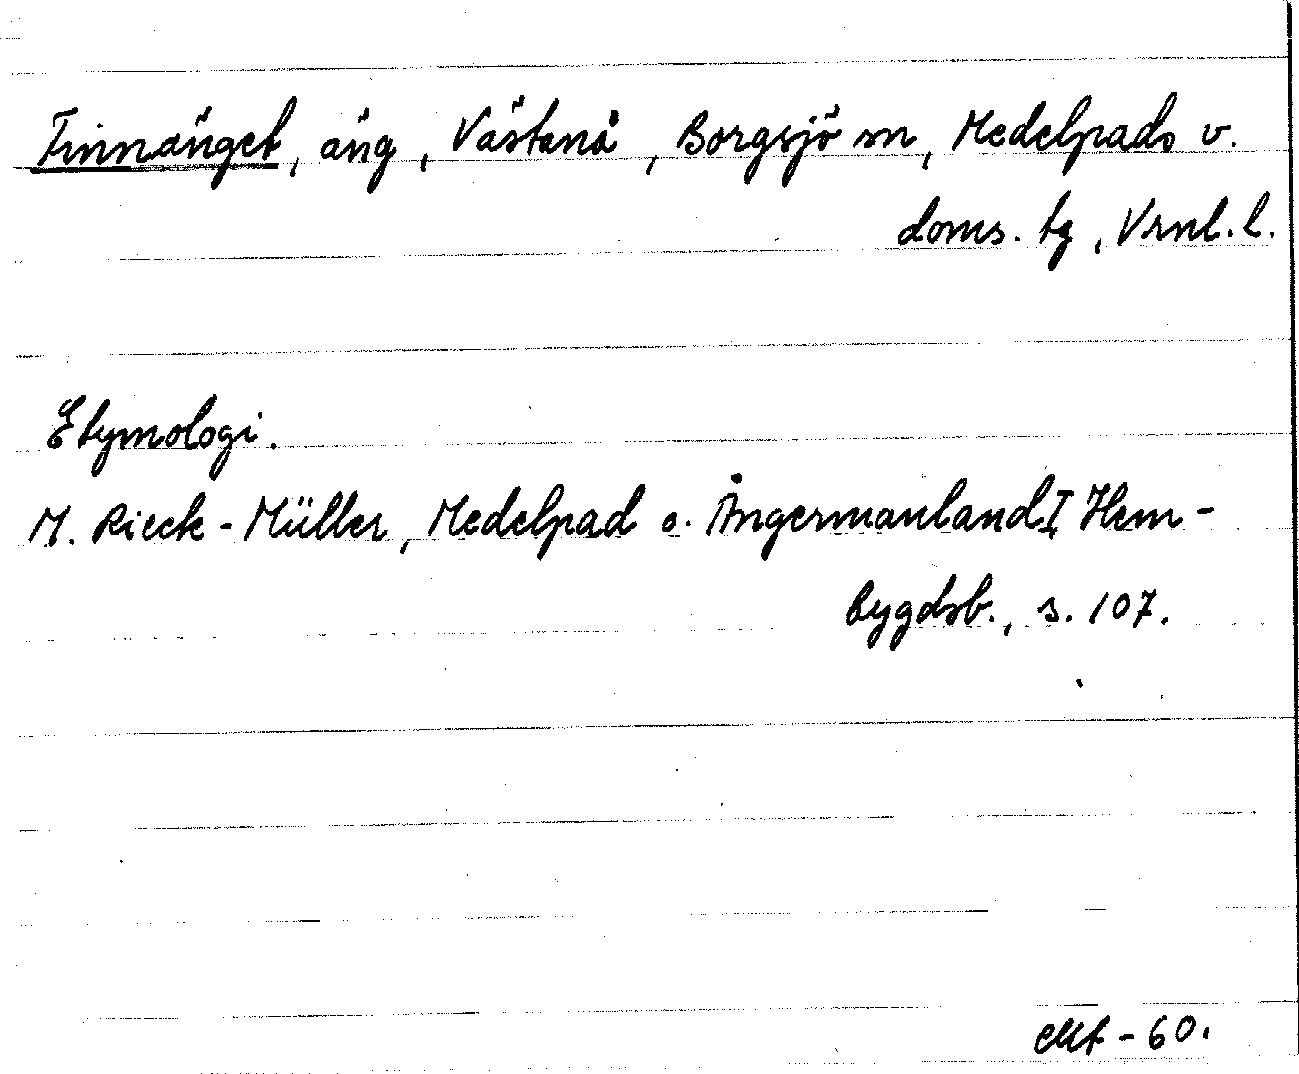 Finnänget, äng, Västanå, Borgsjö sn, Medelpads v.
doms. tg, Vrnl. l.
Etymologi.
M. Rieck-Müller, Medelpad o. Ångermanland I Hem-
bygdsb., s. 107.
-60.